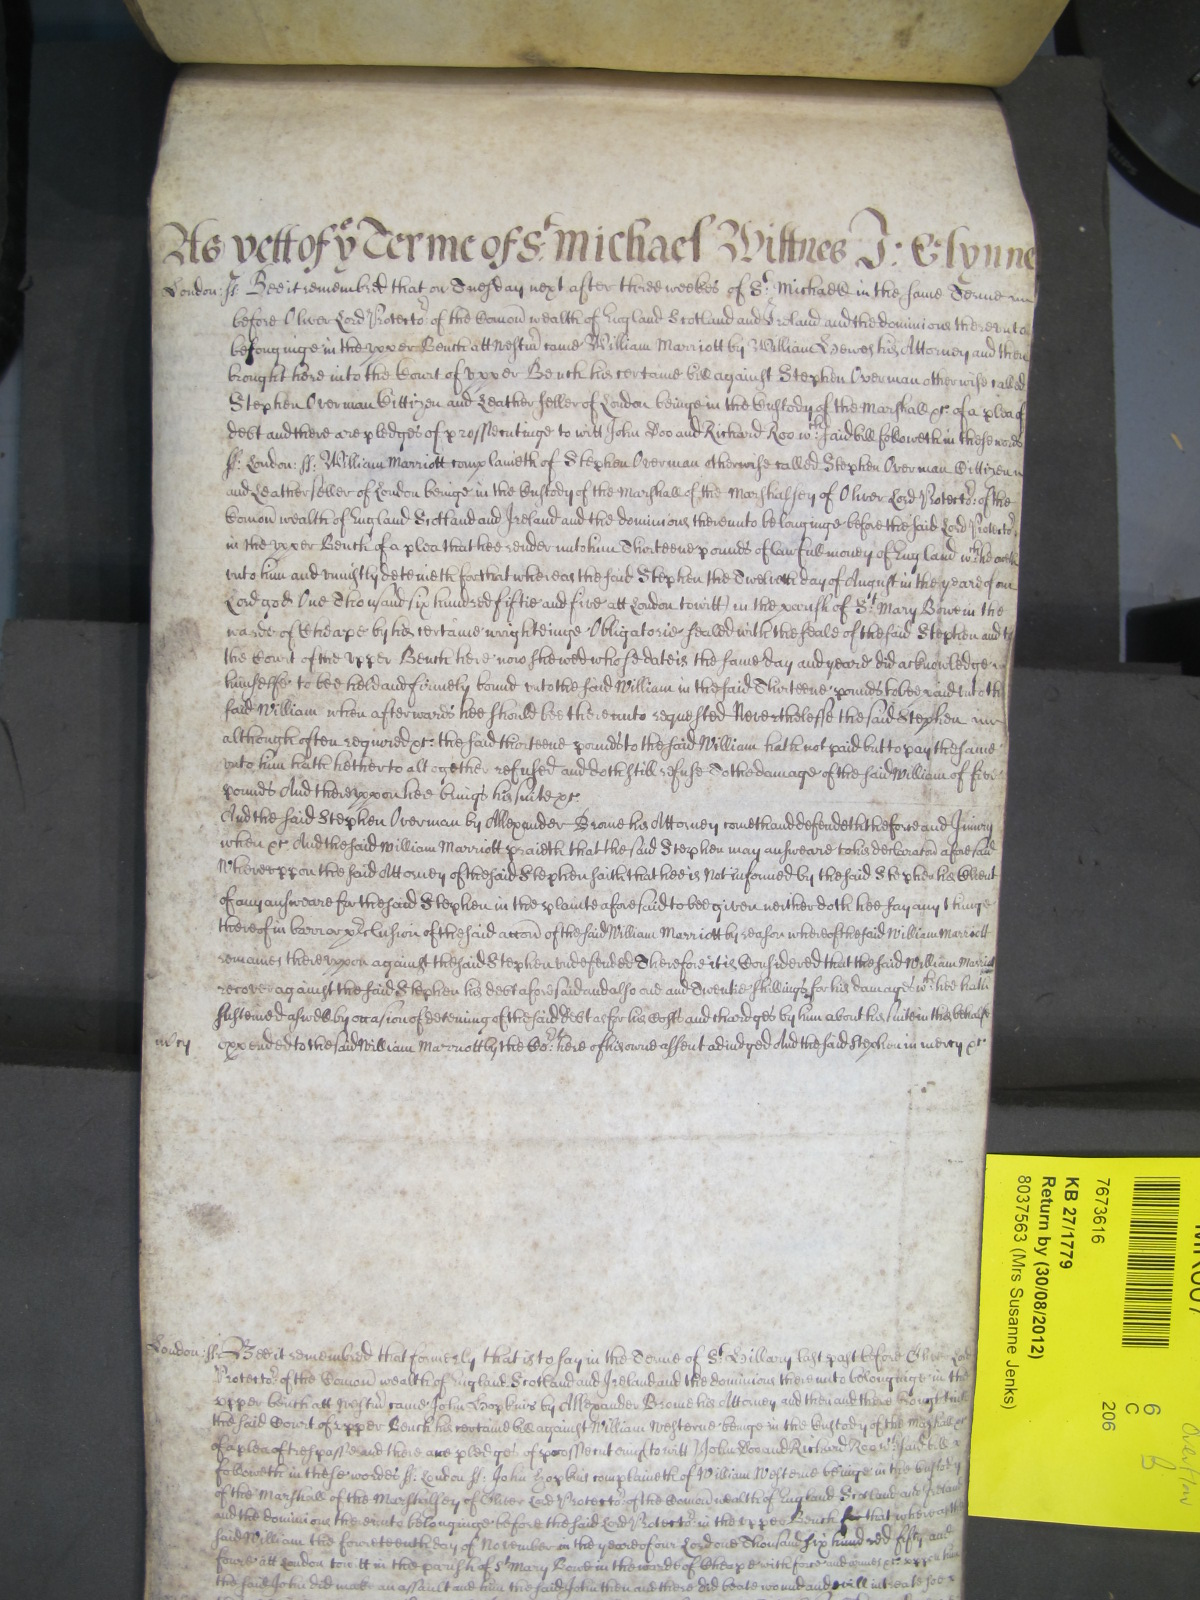 As yett of ye Terme of St Michael Wittnes J: Glynne
London: ss. Bee it remembred that on Tuesday next after three weekes of St. Michaell in the same Terme
before Oliver Lord Protector of the Comon wealth of England Scotland and Ireland and the dominions thereunto
belonginge in the upper Bench att Westm came William Marriott by William Hewes his Attorney and then
brought here into the Court of upper Bench his certaine bill against Stephen Overman otherwise called
Stephen Overman Cittizen and Leatherseller of London beinge in the Custody of the Marshall &c. of a plea of
debt and there are pledges of prossecutinge to witt John Doo and Richard Roo wch said bill followeth in these words
ss. London: ss: William Marriott complaineth of Stephen Overman otherwise called Stephen Overman Cittizen
and Leatherseller of London beinge in the Custody of the Marshall of the Marshallsey of Oliver Lord Protector: of the
Comon wealth of England Scotland and Ireland and the dominions thereunto belonginge before the said Lord Protector
in the upper Bench of a plea that hee render unto him Thirteene pounds of lawfull money of England wch he oweth
unto him and uniustly deteineth for that whereas the said Stephen the Twelveth day of August in the yeare of our
Lord god One Thousand six hundred fiftie and five att London to witt in the parish of St. Mary Bowe in the
warde of Cheape by his certaine wrighteinge Obligatorie sealed with the seale of the said Stephen and to
the Court of the upper Bench here now shewed whose date is the same day and yeare did acknowledge
himselfe to bee held and firmely bound unto the said William in the said Thirteene pounds to bee paid unto the
said William when afterwards hee should bee thereunto requested Neverthelesse the said Stephen
although often required &c. the said thirteene pounds to the said William hath not paid but to pay the same
unto him hath hetherto altogether refused and doth still refuse To the damage of the said William of five
pounds And thereuppon hee brings his suite &c.
And the said Stephen Overman by Allexander Brome his Attorney cometh and defendeth the force and Iniury
when &c And the said William Marriott praieth that the said Stephen may answeare to his declaracon aforesaid
Whereuppon the said Attorney of the said Stephen saith that hee is Not informed by the said Stephen his Client
of any answeare for the said Stephen in the plainte aforesaid to bee given neither doth hee say any thinge
thereof in barr or preclusion of the said accon of the said William Marriott by reason whereof the said William Marriott
remaines thereuppon against the said Stephen undefended Therefore it is Considered that the said William Marriott
recover against the said Stephen his debt aforesaid and also one and Twentie shillings for his damages wch hee hath
susteined aswell by occasion of deteining of the said debt as for his Costs and chardges by him about his suite in this behalfe
mercy expended to the said William Marriott by the Court here of his owne assent adiudged And the said Stephen in mercy &c
London: ss: Bee it remembred that formerly that is to say in the Terme of St. Hillary last past before Oliver Lord
Protector: of the Comon wealth of England Scotland and Ireland and the dominions thereunto belonginge in the
upper bench att Westm came John Hopkins by Allexander Brome his Attorney and then and there brought into
the said Court of upper Bench his certaine bill against William Westerne beinge in the Custody of the Marshall &c
of a plea of trespasse and there are pledges of prossecuting to witt John Doo and Richard Roo wch said bill
followeth in these wordes ss. London ss. John Hopkins complaineth of William Westerne beinge in the Custody
of the Marshall of the Marshallsey of Oliver Lord Protector of the Comon wealth of England Scotland and Ireland
and the dominions thereunto belonginge before the said Lord Protector: in the upper Bench for that whereas the
said William the fowreteenth day of November in the yeare of our Lord one Thousand six hundred fifty and
foure att London to witt in the parish of St Mary Bowe in the warde of Cheape with force and armes &c. uppon him
the said John did make an assault and him the said John then and there did beate wound and evill intreate soe
7673616
KB 27/1779
Return by (30/08/2012)
8037563 (Mrs Susanne Jenks)
6
C
206